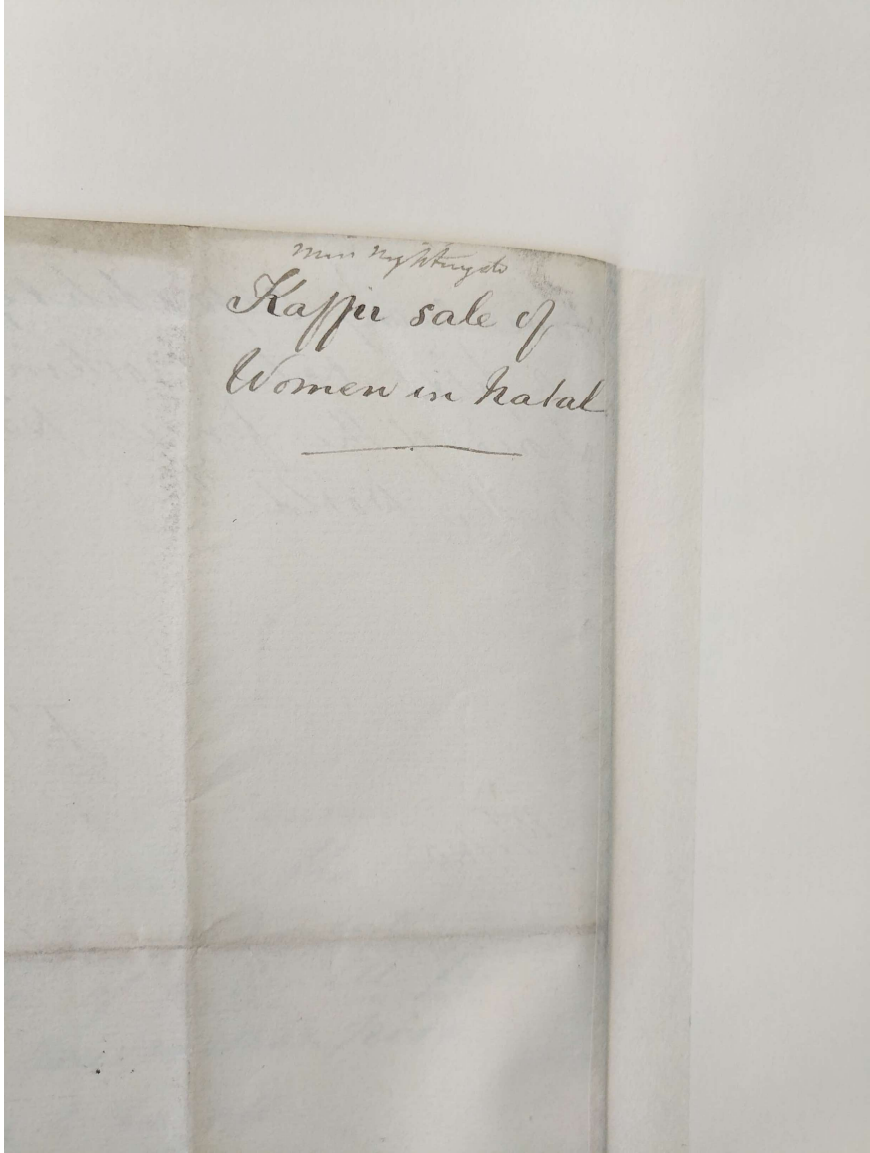 Miss Nightingale
Kaffir sale of
Women in Natal